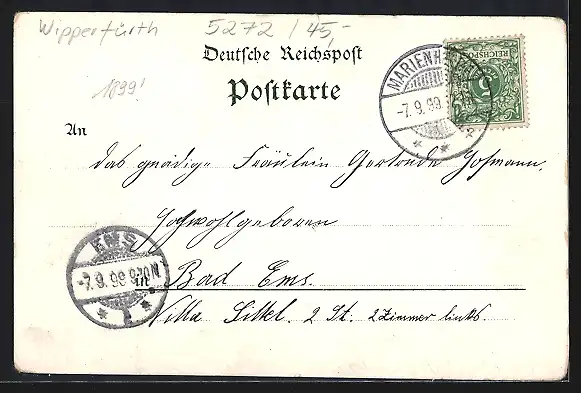 Wipperfürth 5272 / 45,-
Deutsche Reichspost
Postkarte
1899!
MARIENH
-7.9.99.
REICHSPOST
5
An
das gnädige Fräulein Gertrude Hofmann,
Hochwohlgeboren
EMS
-7.9.99 9-10N
1
in Bad Ems.
Villa Sittel. 2 St. 2 Zimmer links.